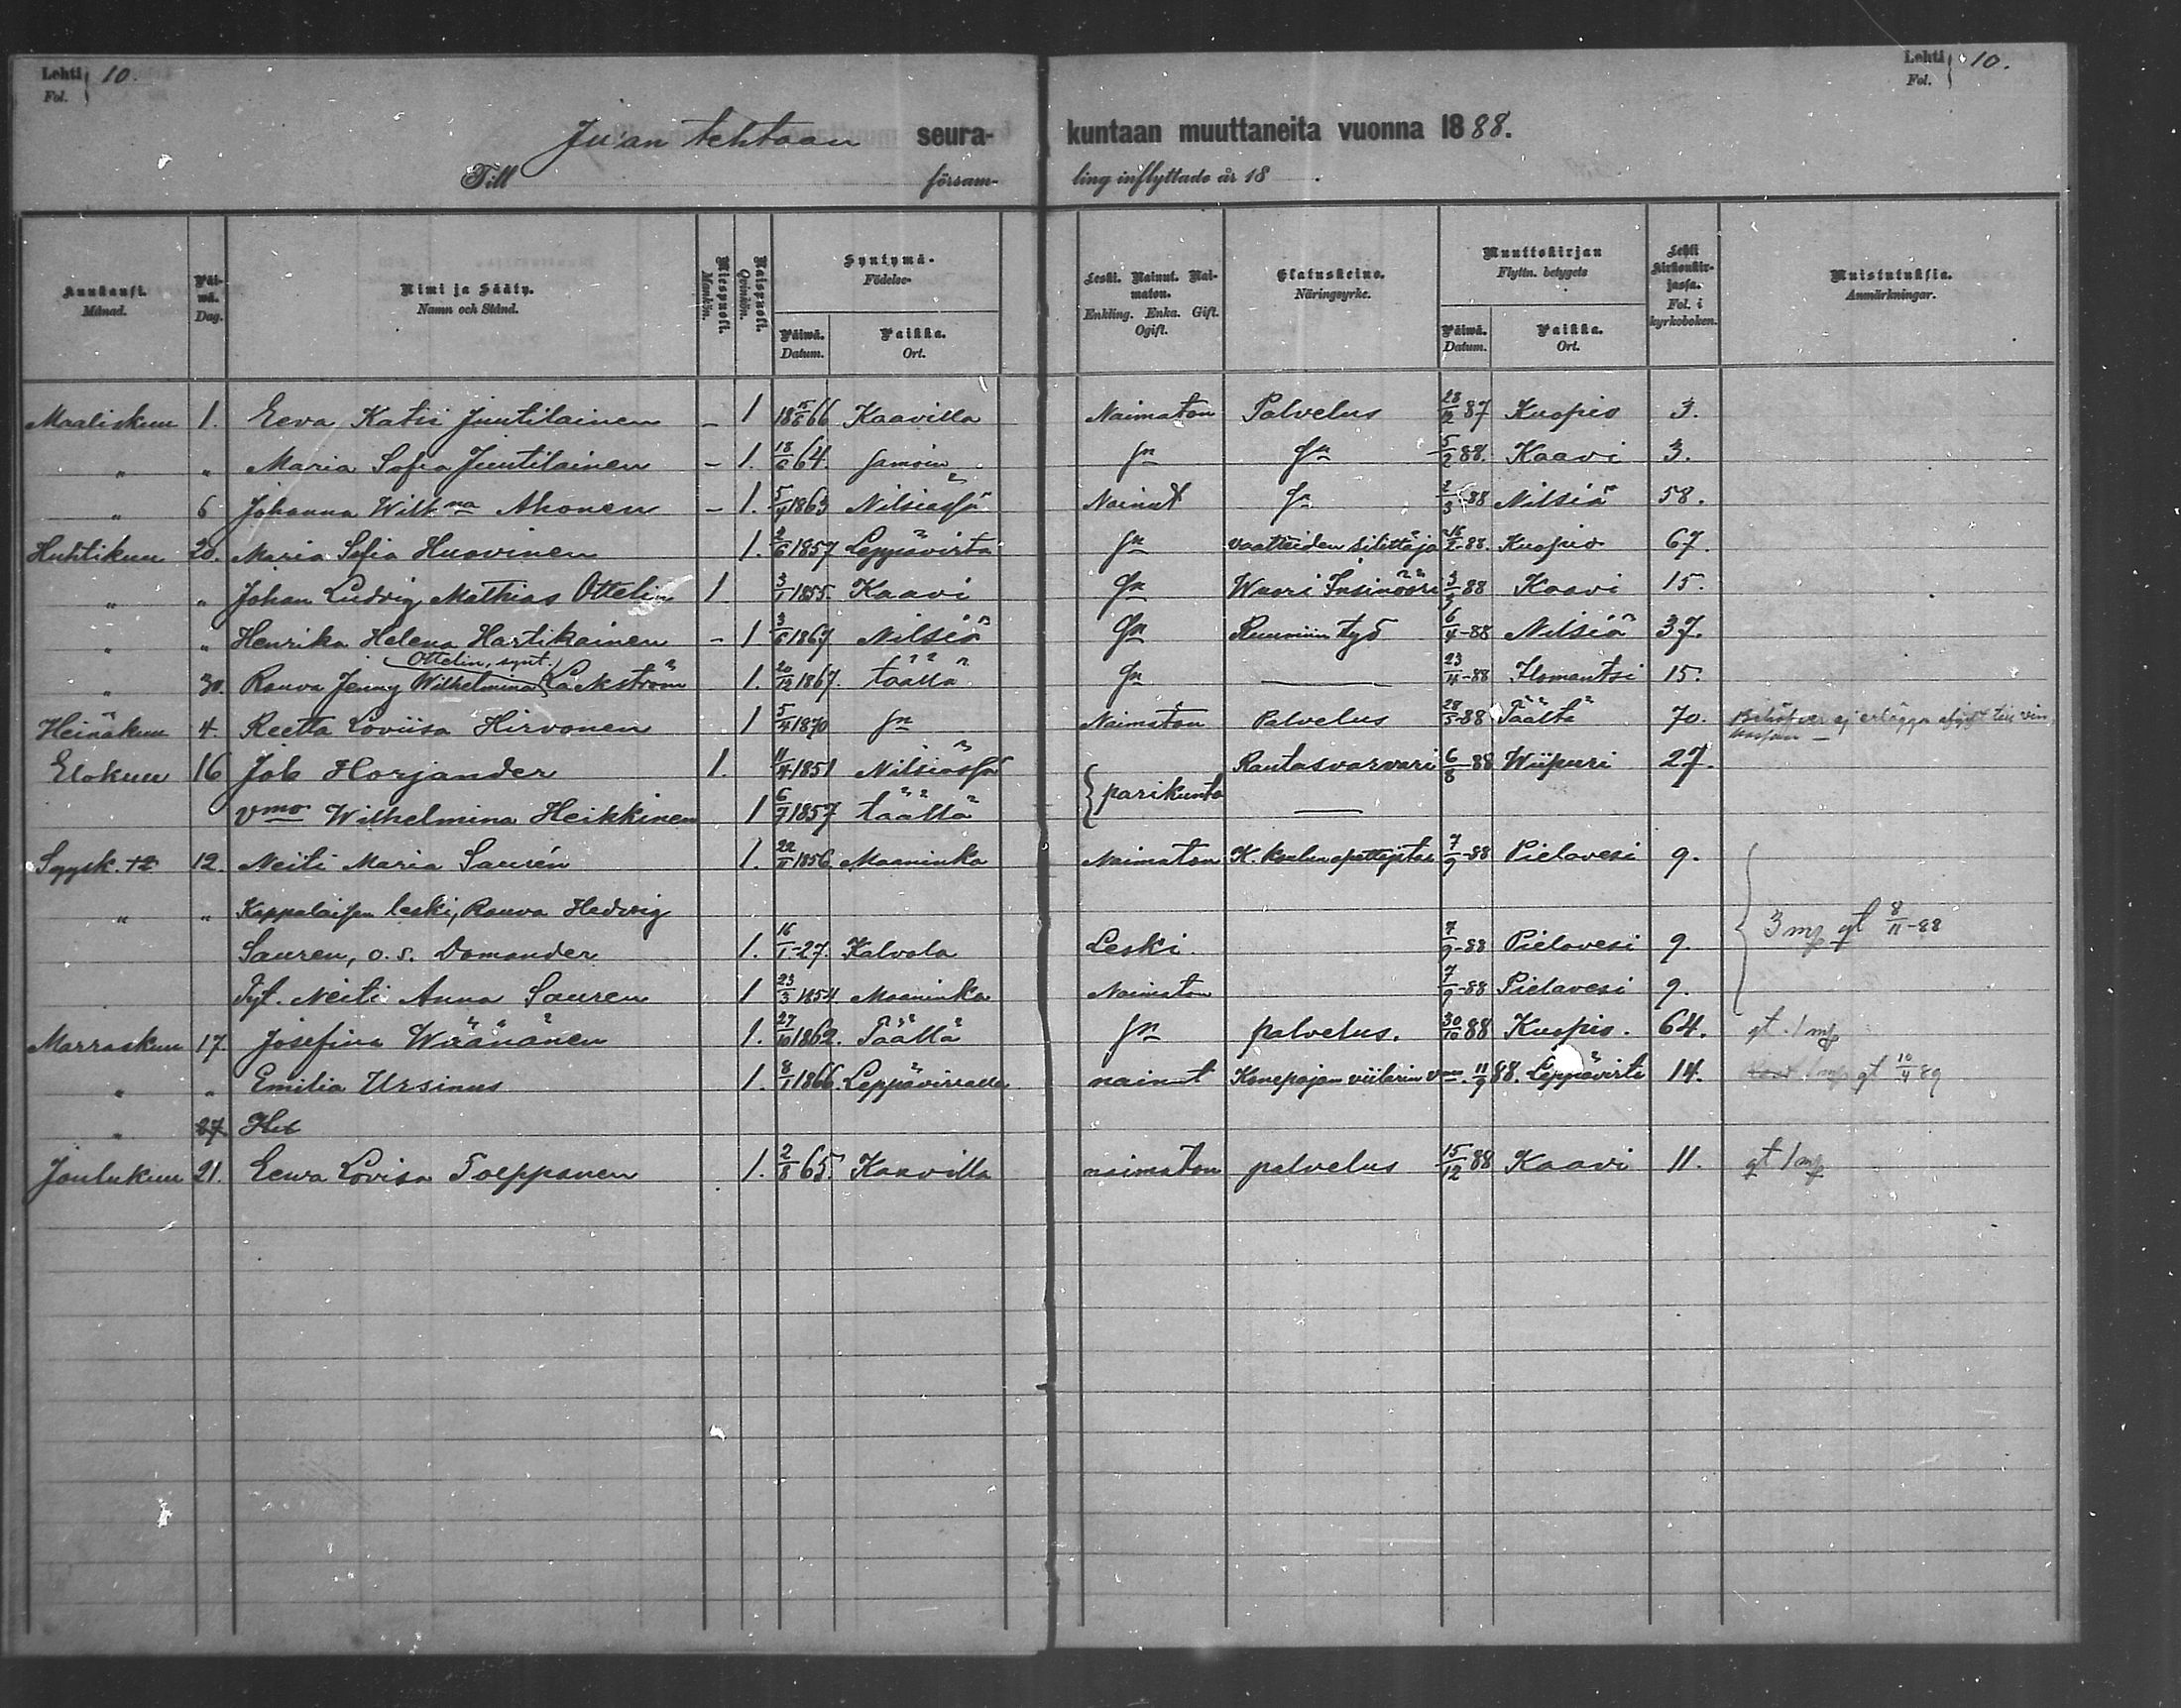 Lehti 10.
Fol.
Lehti 10.
Fol.
Ju'an tehtaan seura- kuntaan muuttaneita vuonna 1888.
Till församling inflyttade år 18 .
Kuukausi. Månad. Päi-wä. Dag. Nimi ja Sääty. Namn och Stånd. Miespuoli. Mankön. Naispuoli. Qvinkön. Syntymä- Födelse- Päiwä. Datum. Paikka. Ort. Leski. Nainut. Nai-maton. Enkling. Enka. Gift. Ogift. Elatuskeino. Näringsyrke. Muuttokirjan Flyttn. betygets Päiwä. Datum. Paikka. Ort. Lehti kirkonkir-jassa. Fol. i kyrkoboken. Muistutuksia. Anmärkningar.
Maaliskuu 1. Eeva Katri Juutilainen - 1 18 15/8 66 Kaavilla Naimaton Palvelus 28/12 87 Kuopio 3.
" " Maria Sofia Juutilainen - 1. 18/6 64. samoin sn sn 5/2 88. Kaavi 3.
" 6 Johanna Wilhma Ahonen - 1. 5/4 1863 Nilsiässä Nainut sn 2/3 -88 Nilsiä 58.
Huhtikuu 20. Maria Sofia Huovinen 1. 2/6 1857 Leppävirta sn vaatteiden silittäjä 16/2 -88. Kuopio 67.
" " Johan Ludvig Mathias Ottelin 1 3/1 1855. Kaavi sn Wuori Insinööri 3/3 -88 Kaavi 15.
" " Henrika Helena Hartikainen - 1 3/6 1867 Nilsiä sn Ruumiin työ 6/4 -88 Nilsiä 37.
Ottelin, synt.
" 30. Rouva Jenny Wilhelmina Lackström 1. 20/12 1867. täällä sn — 23/4 -88 Ilomantsi 15.
Heinäkuu 4. Reetta Loviisa Hirvonen 1 5/4 1870 sn Naimaton Palvelus 28/5 -88 Täältä 70. Behöfver ej erlägga afgift till
Elokuu 16 Job Horjander 1. 11/4 1851 Nilsiässä { parikunta Rautasorvari 6/8 -88 Wiipuri 27.
vmo Wilhelmina Heikkinen 1 6/7 1857 täällä —
Syysk. 12 12. Neiti Maria Saurén 1. 22/11 1856 Maaninka Naimaton K. koulun opettajatar 7/9 -88 Pielavesi 9.
" " Kappalaisen leski, Rouva Hedvig
Sauren, o.s. Domander 1. 16/1 -27. Kalvola Leski. 7/9 -88 Pielavesi 9. 3 mp gt 8/11 -88
Tyt. Neiti Anna Sauren 1 23/3 1854 Maaninka Naimaton 7/9 -88 Pielavesi 9.
Marraskuu 17. Josefina Wäänänen 1. 27/10 1862. Täällä sn palvelus. 30/10 88 Kuopio. 64. gt. 1 mp
" " Emilia Ursinus 1. 8/1 1866. Leppävirralla nainut Konepajan viilarin vmo. 11/9 88. Leppävirta 14. 1 mp gt 10/4 89
" 27 Hel
Joulukuu 21. Eewa Lovisa Toeppanen 1. 2/8 65. Kaavilla naimaton palvelus 15/12 88 Kaavi 11. gt 1 mp